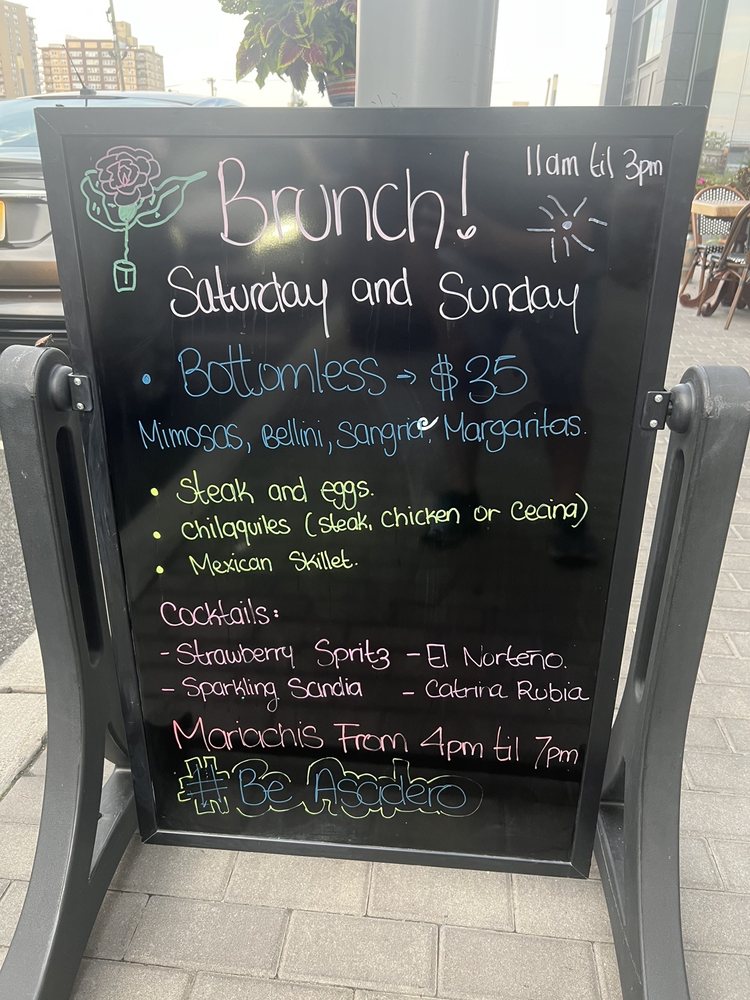 11am til 3pm
Brunch!
Saturday and Sunday
• Bottomless → $35
Mimosas, Bellini, Sangria, Margaritas.
• Steak and eggs.
• Chilaquiles (steak, chicken or cecina)
• Mexican Skillet.
Cocktails:
- Strawberry Spritz - El Norteño.
- Sparkling Sandia - Catrina Rubia
Mariachis From 4pm til 7pm
#Be Asadero